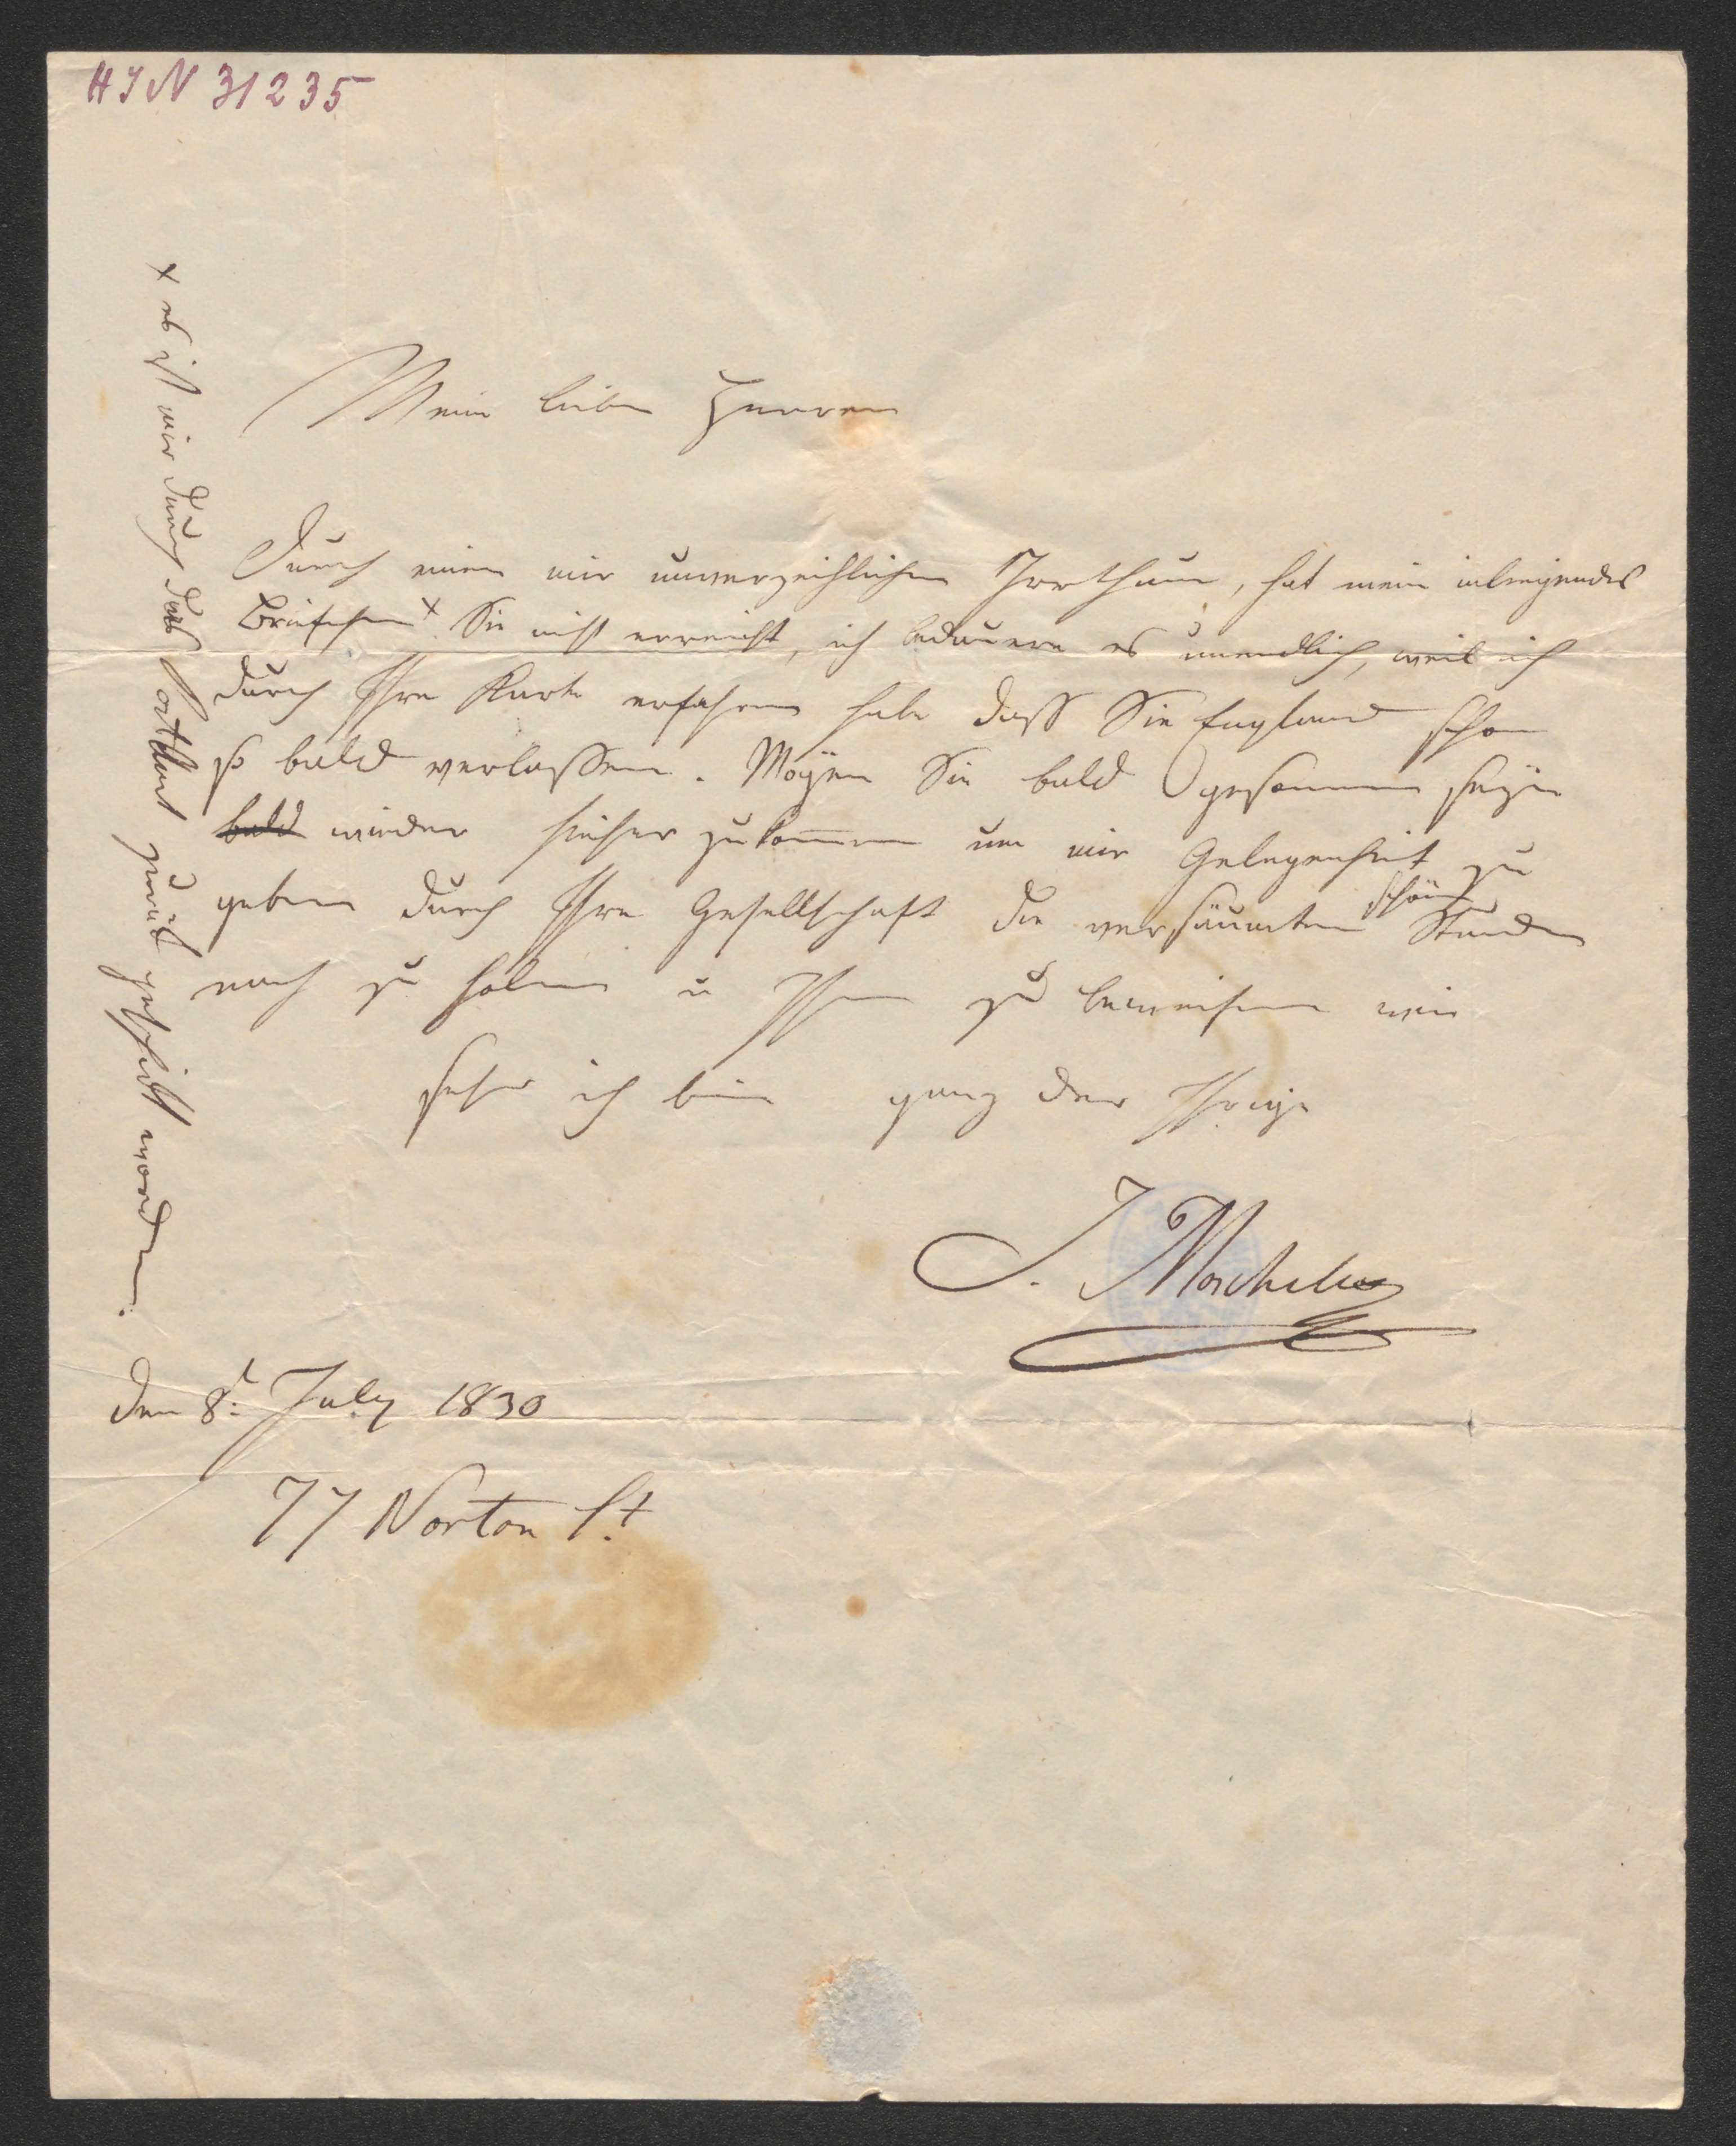 HIN 31235
Mein lieber Herr
Durch einen mir unverzeihlichen Irrthum, hat mein inliegendes
Briefchen + Sie nicht erreicht, ich bedauere es unendlich, weil ich
durch Ihre Karte erfahren habe dass Sie England schon
so bald verlassen. Mögen Sie bald gesonnen seyn
bald wieder hieher zukommen um mir Gelegenheit zu
geben durch Ihre Gesellschaft die versäumten schönen Stunden
nach zu holen u Ihnen zu beweisen wie
sehr ich bin ganz der Ihrige
J. Moscheles
den 8t. July 1830
77 Norton St.
+ es ist mir durch das zurück geschickt worden.